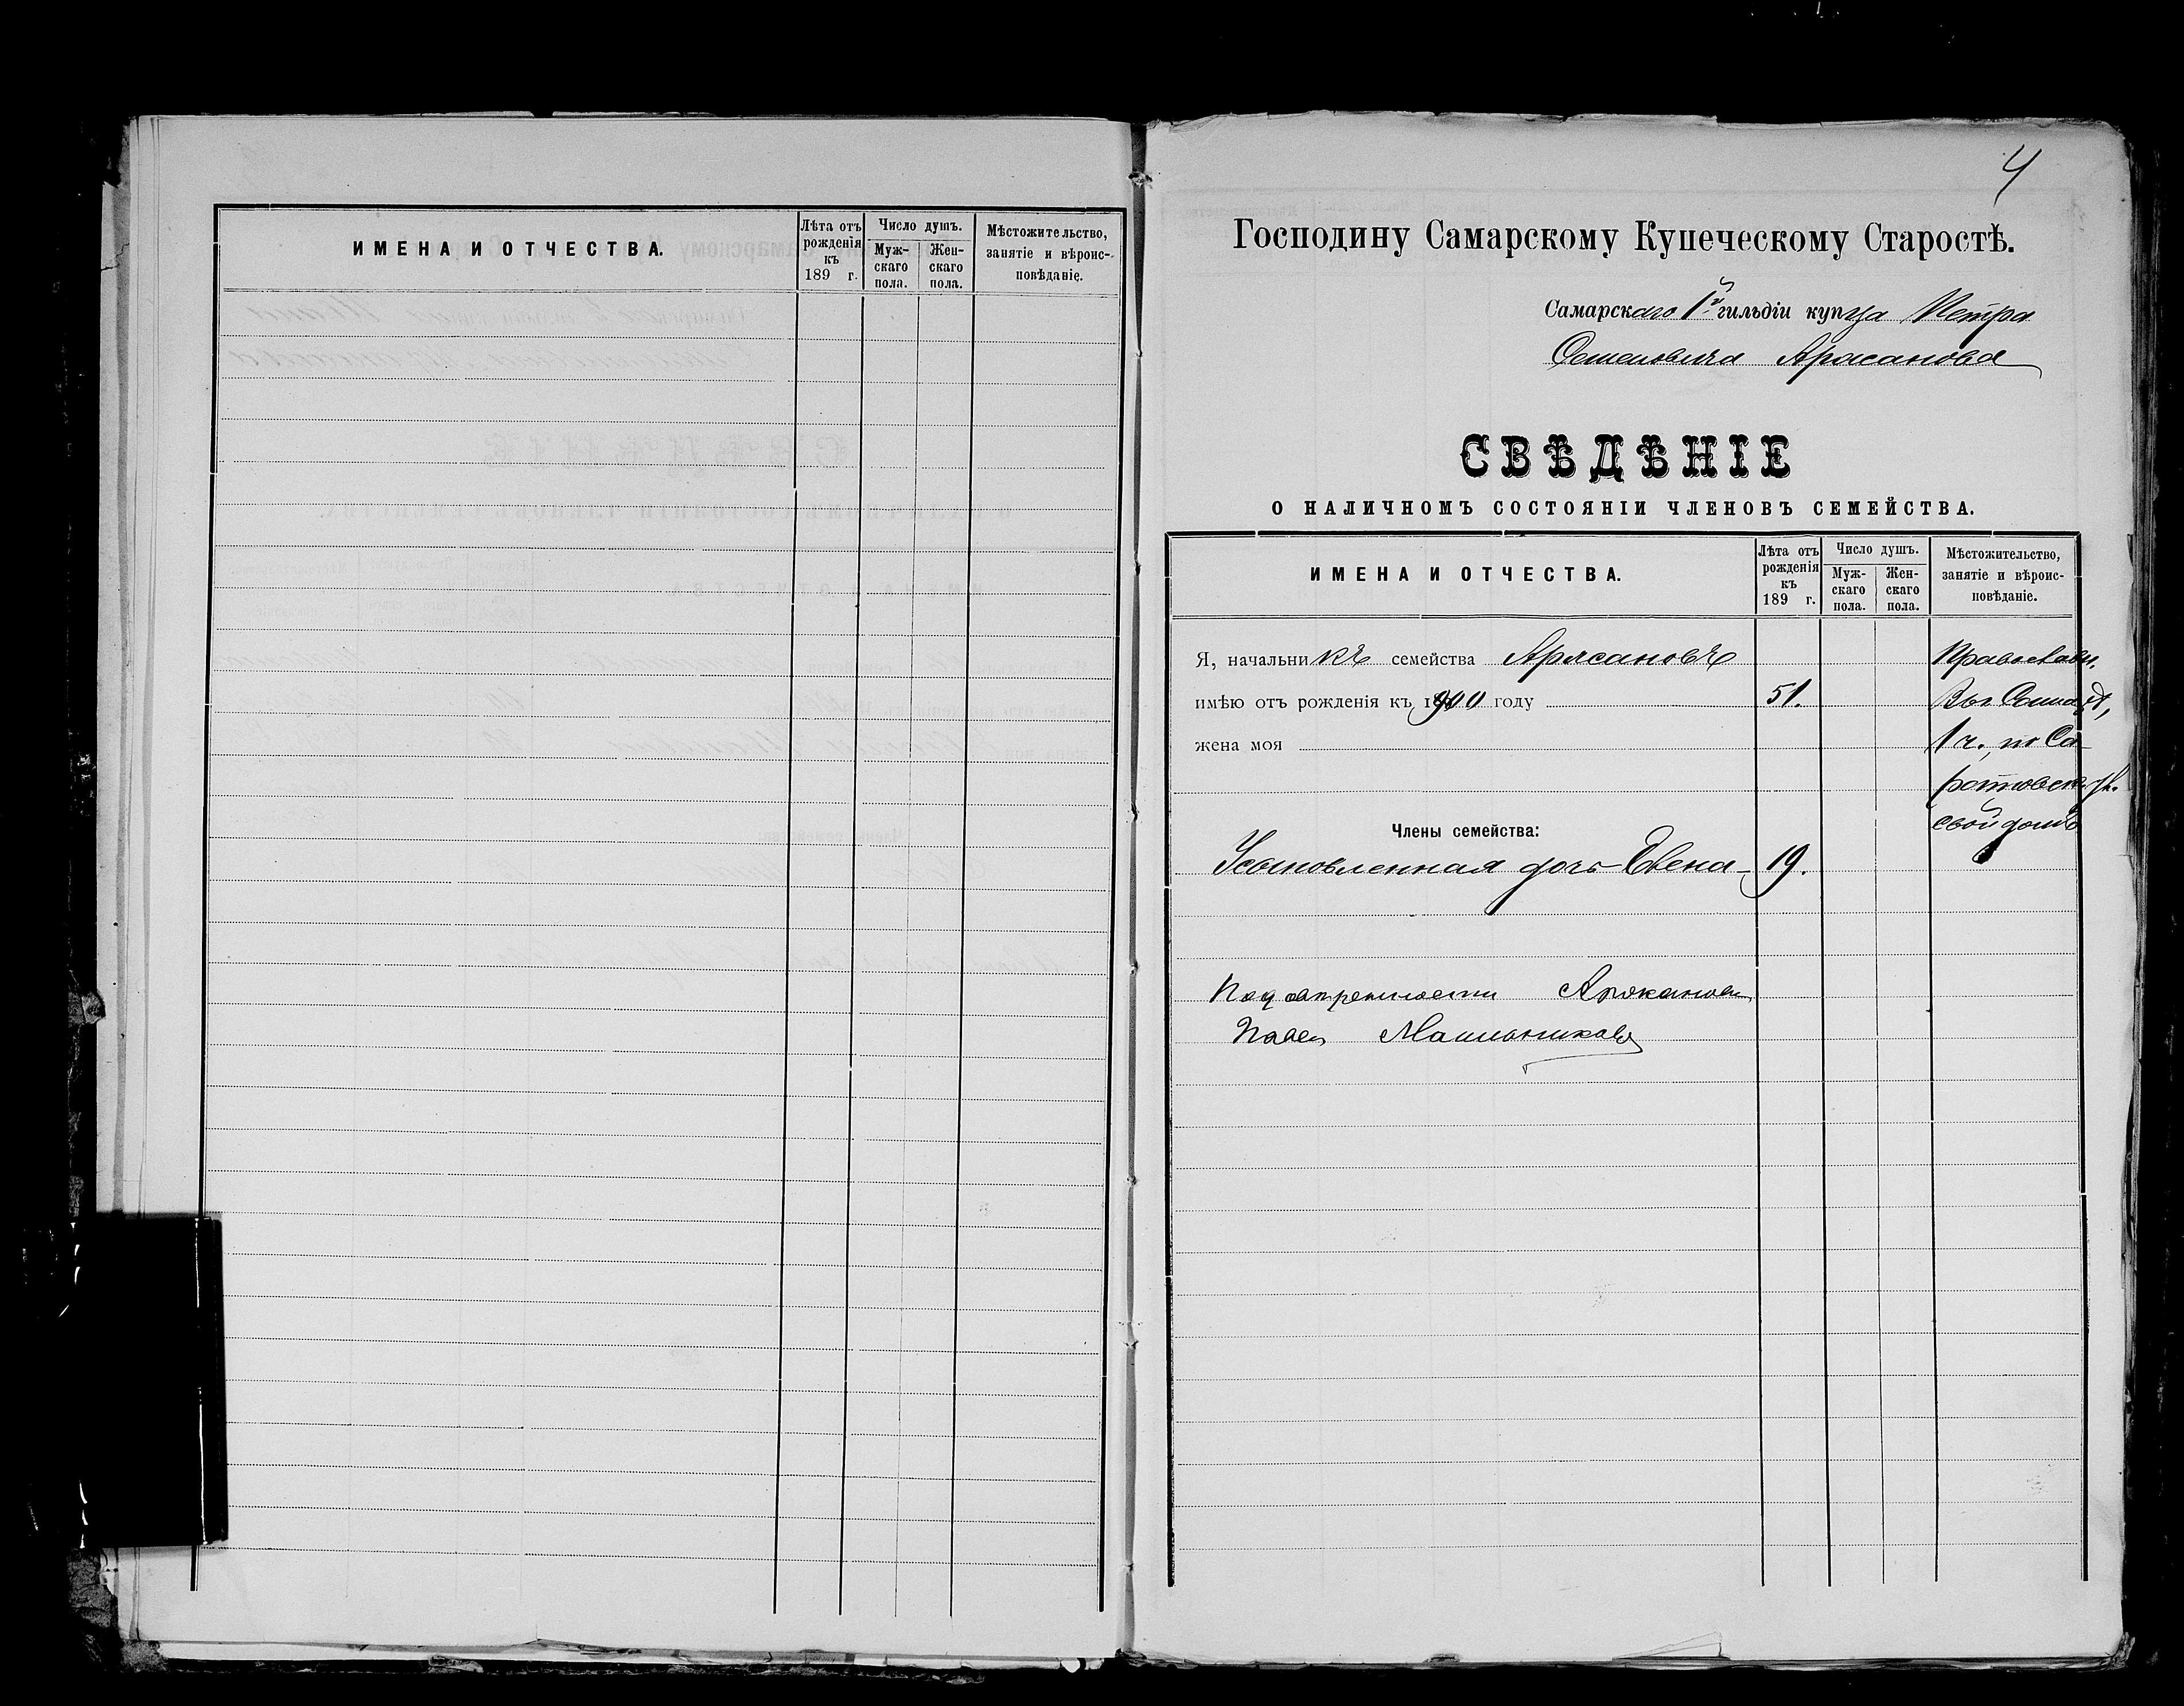 ИМЕНА И ОТЧЕСТВА.
Лѣта отъ рожденія къ 189 г.
Число душъ.
Мужскаго пола.
Женскаго пола.
Мѣстожительство, занятіе и вѣроисповѣданіе.
4
Господину Самарскому Купеческому Старостѣ.
Самарскаго 1й гильдіи купца Петра
Семеновича Арясанова
СВѢДѢНІЕ
О НАЛИЧНОМЪ СОСТОЯНІИ ЧЛЕНОВЪ СЕМЕЙСТВА.
ИМЕНА И ОТЧЕСТВА.
Лѣта отъ рожденія къ 189 г.
Число душъ.
Мужскаго пола.
Женскаго пола.
Мѣстожительство, занятіе и вѣроисповѣданіе.
Я, начальникъ семейства Арясановъ Православн.
имѣю отъ рожденія къ 1900 году 51. Въ
жена моя 1 ч., по Са-
ратовск. ул.
Члены семейства: свой домъ
Усыновленная дочь Елена 19.
По довѣренности
Павелъ Машьниковъ